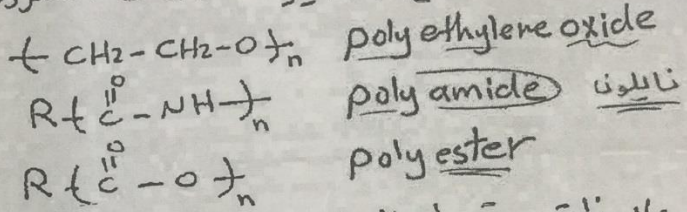 -(CH2-CH2-O)-n polyethylene oxide
R-(C(=O)-NH)-n polyamide نايلون
R-(C(=O)-O)-n polyester